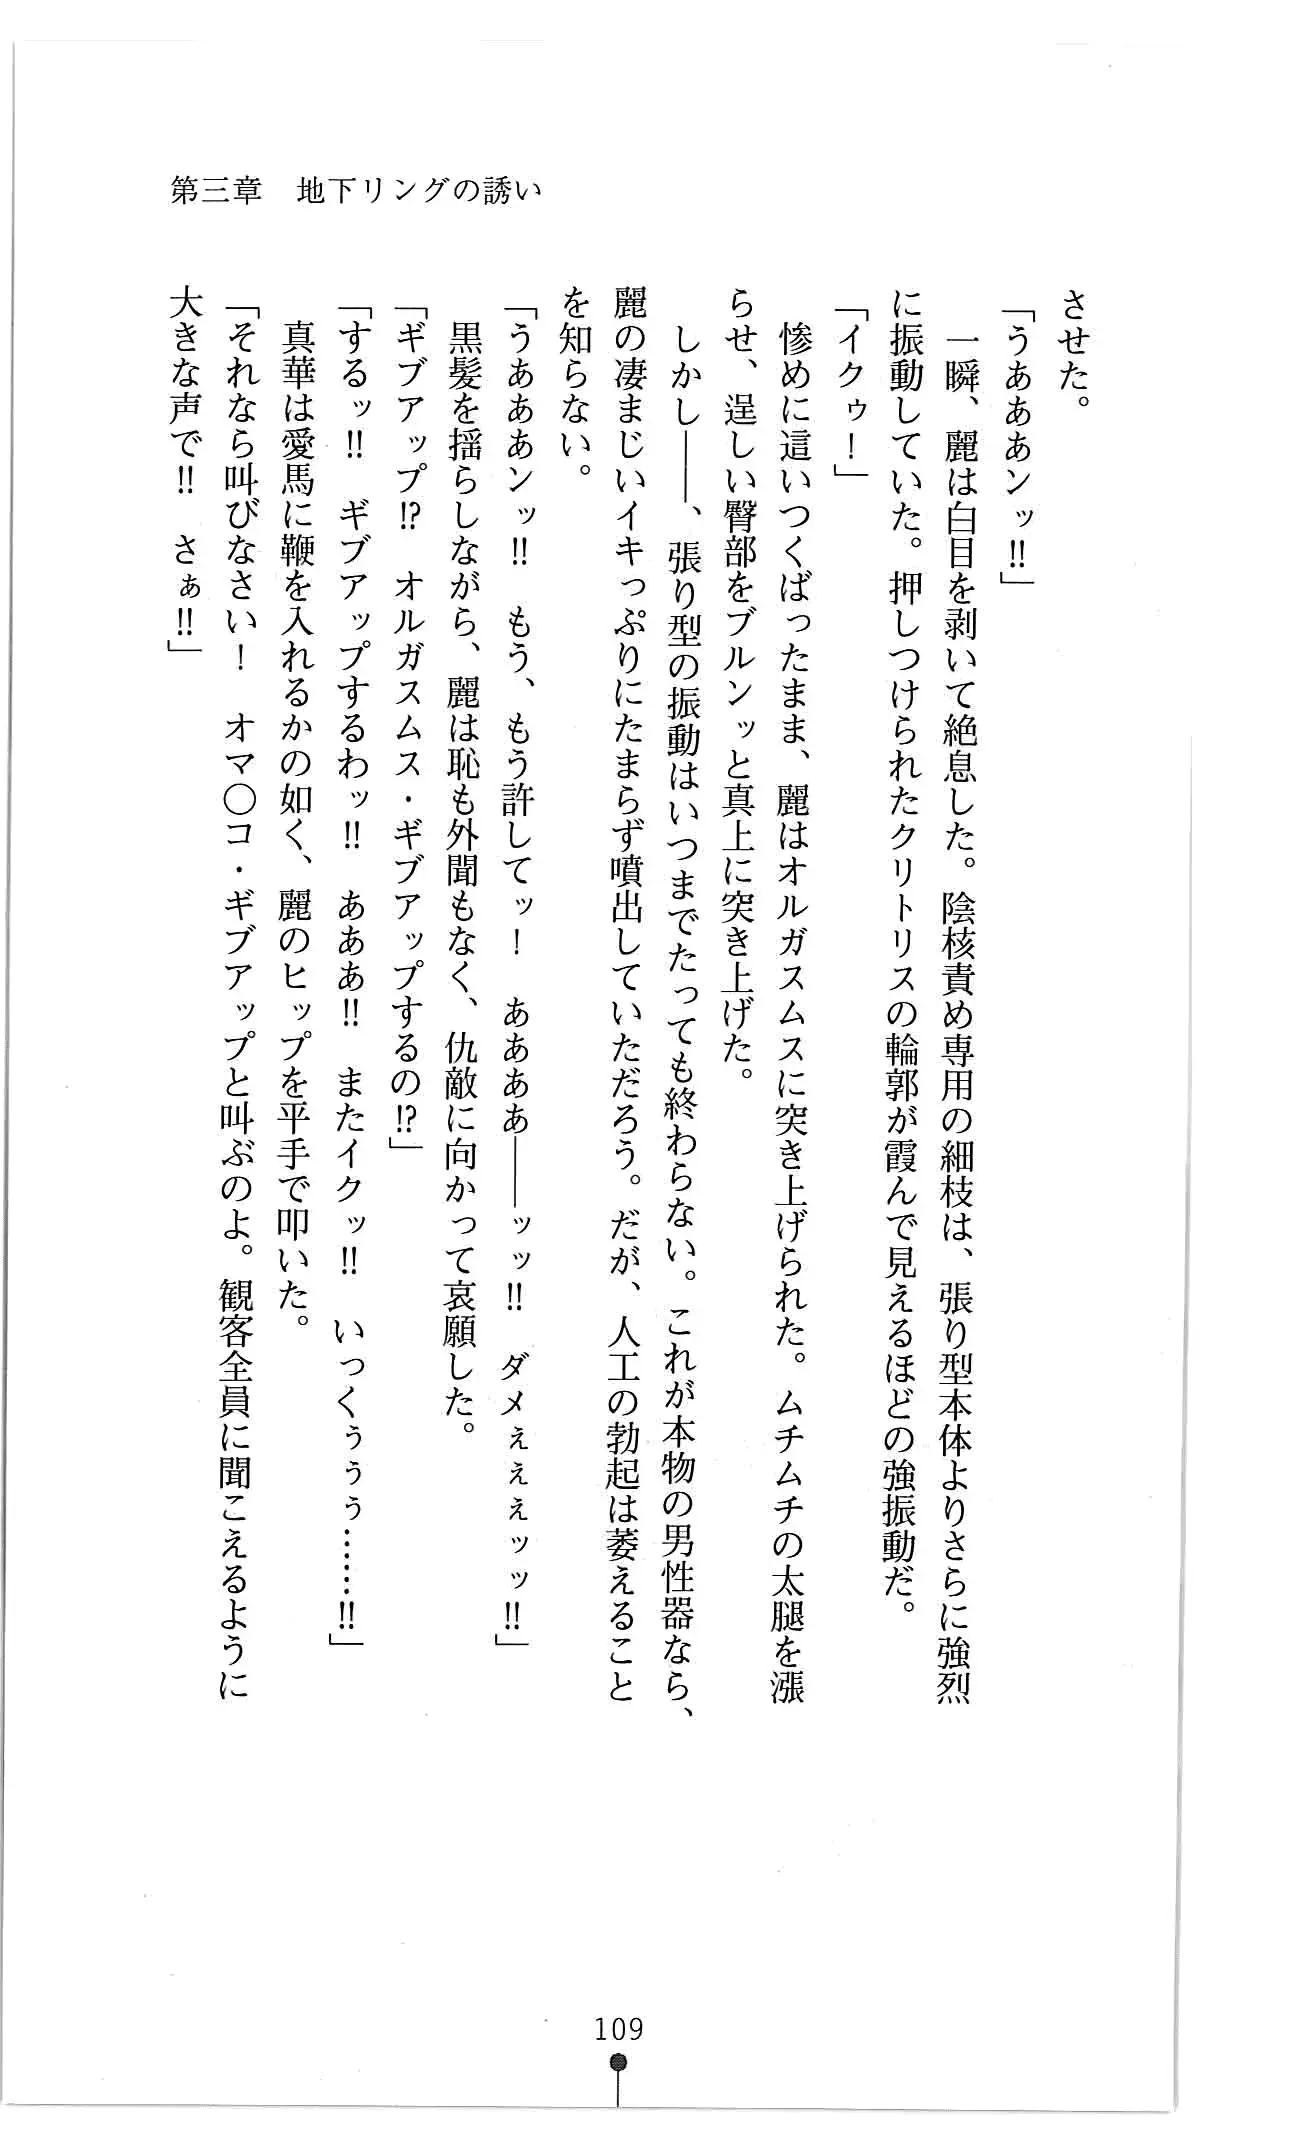 第三章　地下リングの誘い
させた。
「うあああンッ!!」
　一瞬、麗は白目を剥いて絶息した。陰核責め専用の細枝は、張り型本体よりさらに強烈
に振動していた。押しつけられたクリトリスの輪郭が霞んで見えるほどの強振動だ。
「イクゥ！」
　惨めに這いつくばったまま、麗はオルガスムスに突き上げられた。ムチムチの太腿を漲
らせ、逞しい臀部をブルンッと真上に突き上げた。
　しかし――、張り型の振動はいつまでたっても終わらない。これが本物の男性器なら、
麗の凄まじいイキっぷりにたまらず噴出していただろう。だが、人工の勃起は萎えること
を知らない。
「うあああンッ!!　もう、もう許してッ！　ああああ――ッッ!!　ダメぇぇぇッッ!!」
　黒髪を揺らしながら、麗は恥も外聞もなく、仇敵に向かって哀願した。
「ギブアップ!?　オルガスムス・ギブアップするの!?」
「するッ!!　ギブアップするわッ!!　あああ!!　またイクッ!!　いっくぅぅぅ……!!」
　真華は愛馬に鞭を入れるかの如く、麗のヒップを平手で叩いた。
「それなら叫びなさい！　オマ〇コ・ギブアップと叫ぶのよ。観客全員に聞こえるように
大きな声で!!　さぁ!!」
109